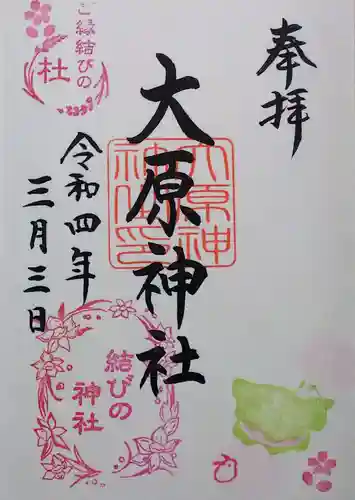 奉拝
大原神社
大原神
神社印
令和四年
三月三日
ご縁結びの
社
結びの
神社